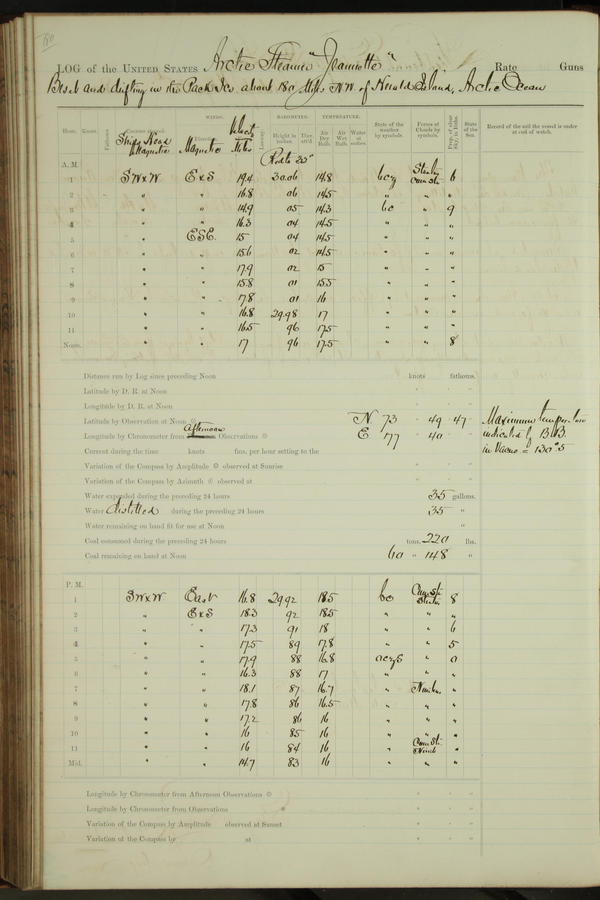 180
LOG of the UNITED STATES Arctic Steamer "Jeannette" Rate Guns
Beset and drifting in the Pack Ice about 180 Miles NW of Herald Island, Arctic Ocean
WINDS. BAROMETER. TEMPERATURE.
Hour. Knots. Fathoms. Ships Head Magnetic Magnetic Velocity Miles Leeway. Height in inches. Ther. att'd Air Dry Bulb. Air Wet Bulb. Water at surface. State of the weather by symbols. Forms of Clouds by symbols. Prop. of clear Sky, in 10ths. State of the Sea. Record of the sail the vessel is under at end of watch.
A. M.
1 SWxW ExS 19.4 30.06 14.8 bcz Stratus Cum st 6
2 " " 16.8 06 14.5 " " "
3 " " 14.9 05 14.3 bc " 9
4 " " 16.3 04 14.5 " " "
5 " ESE. 15 04 14.5 " " "
6 " " 15.6 02 14.5 " " "
7 " " 17.9 02 15 " " "
8 " " 15.8 01 15.5 " " "
9 " " 17.8 01 16 " " "
10 " " 16.8 29.98 17 " " "
11 " " 16.5 96 17.5 " " "
Noon. " " 17 96 17.5 " " 8
Distance run by Log since preceding Noon knots fathoms.
Latitude by D. R. at Noon " " "
Longitude by D. R. at Noon " " "
Latitude by Observation at Noon N. 73 " 49 " 47 "
Longitude by Chronometer from Afternoon Observations E 177 " 40 "
Maximum temperature
indicated by B.B.
in Vacuo = 130°5
Current during the time knots fms. per hour setting to the
Variation of the Compass by Amplitude observed at Sunrise " " "
Variation of the Compass by Azimuth observed at " " "
Water expended during the preceding 24 hours 35 gallons.
Water distilled during the preceding 24 hours 35 "
Water remaining on hand fit for use at Noon "
Coal consumed during the preceding 24 hours tons, 220 lbs.
Coal remaining on hand at Noon 60 " 148 "
P. M.
1 SWxW East 16.8 29.92 18.5 bc Cum st Stratus 8
2 " ExS 18.3 92 18.5 " " "
3 " " 17.3 91 18 " " 6
4 " " 17.5 89 17.8 " " 5
5 " " 17.9 88 16.8 " 0
6 " " 16.3 88 17 " " "
7 " " 18.1 87 16.7 " Nimbus "
8 " " 17.8 86 16.5 " " "
9 " " 17.2 86 16 " " "
10 " " 16 85 16 " " "
11 " " 16 84 16 " Cum St Nimb "
Mid. " " 14.7 83 16 " " "
Longitude by Chronometer from Afternoon Observations " " "
Longitude by Chronometer from Observations " " "
Variation of the Compass by Amplitude observed at Sunset " " "
Variation of the Compass by at " " "